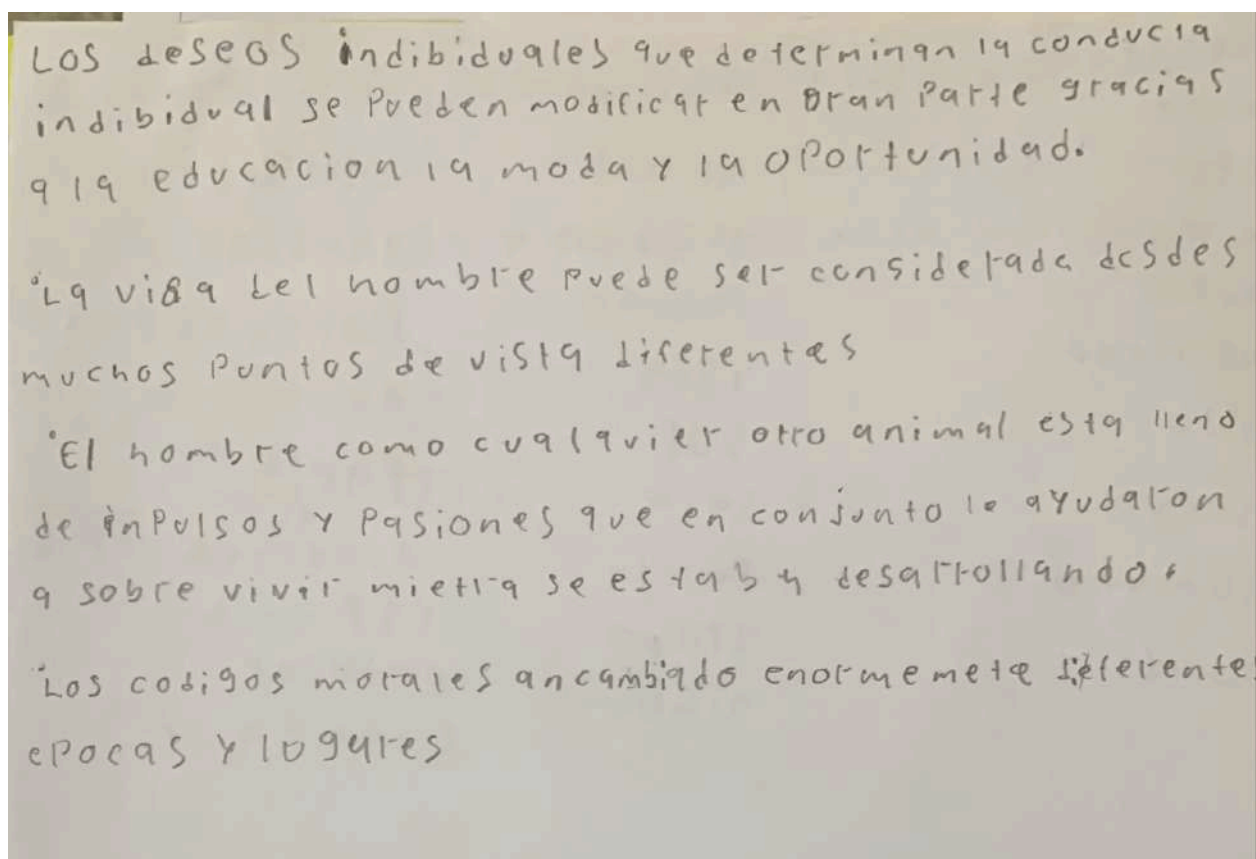 Los deseos indibiduales que determinan la conducta
indibidual se pueden modificar en Bran Parte gracias
a la educacion la moda y la oportunidad.
°La vida del hombre puede ser considerada desdes
muchos Puntos de vista diferentes
°El hombre como cualquier otro animal esta lleno
de inpulsos y Pasiones que en conjunto le ayudaron
a sobre vivir mietra se estaba desarrollando.
°Los codigos morales an cambiado enormemete diferente
epocas y logares